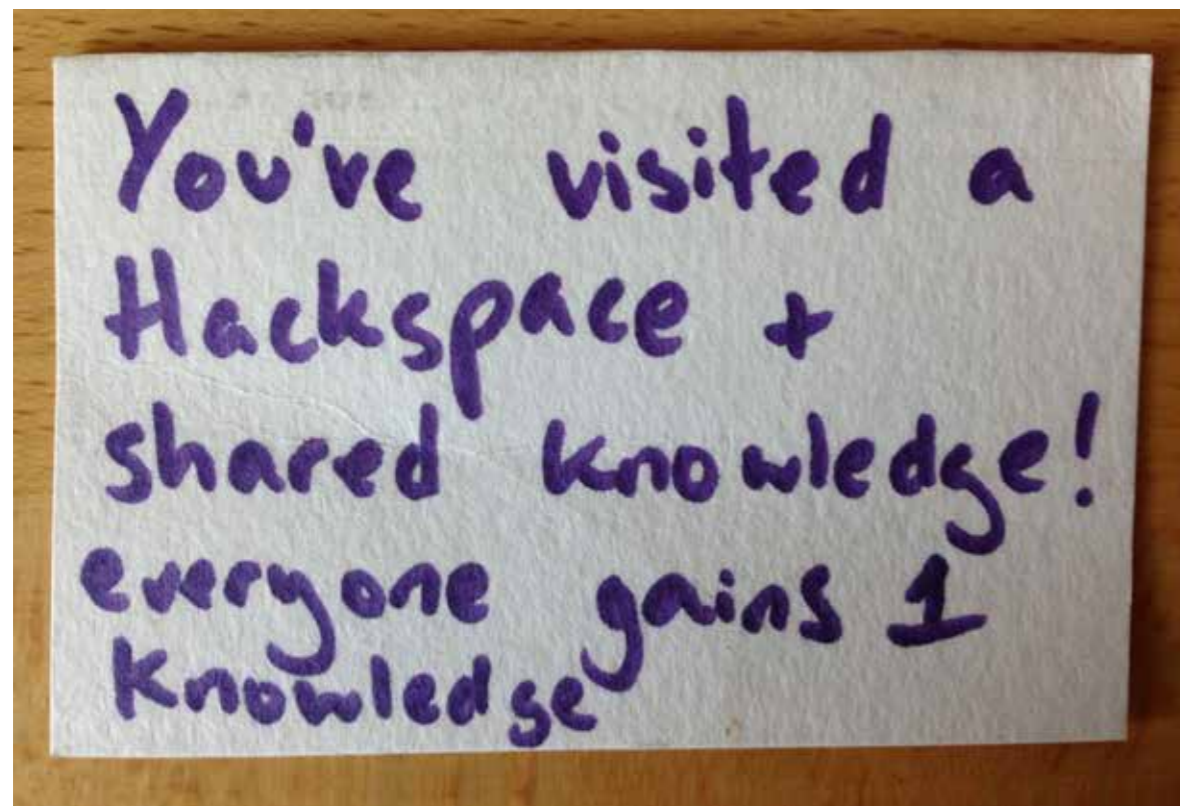 You've visited a
Hackspace +
shared knowledge!
everyone gains 1
knowledge